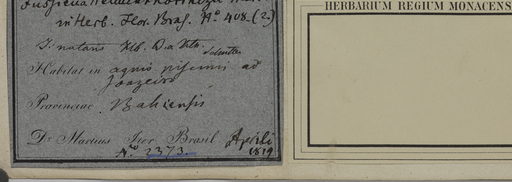 in Herb. Flor. Bras. No 408. (2)
J. natans Hb.
Habitat in aquis piscinis ad
Joazeiro
Provinciae Bahiensis
Dr Martius Iter Brasil Aprili
No 2373. 1819
HERBARIUM REGIUM MONACENS